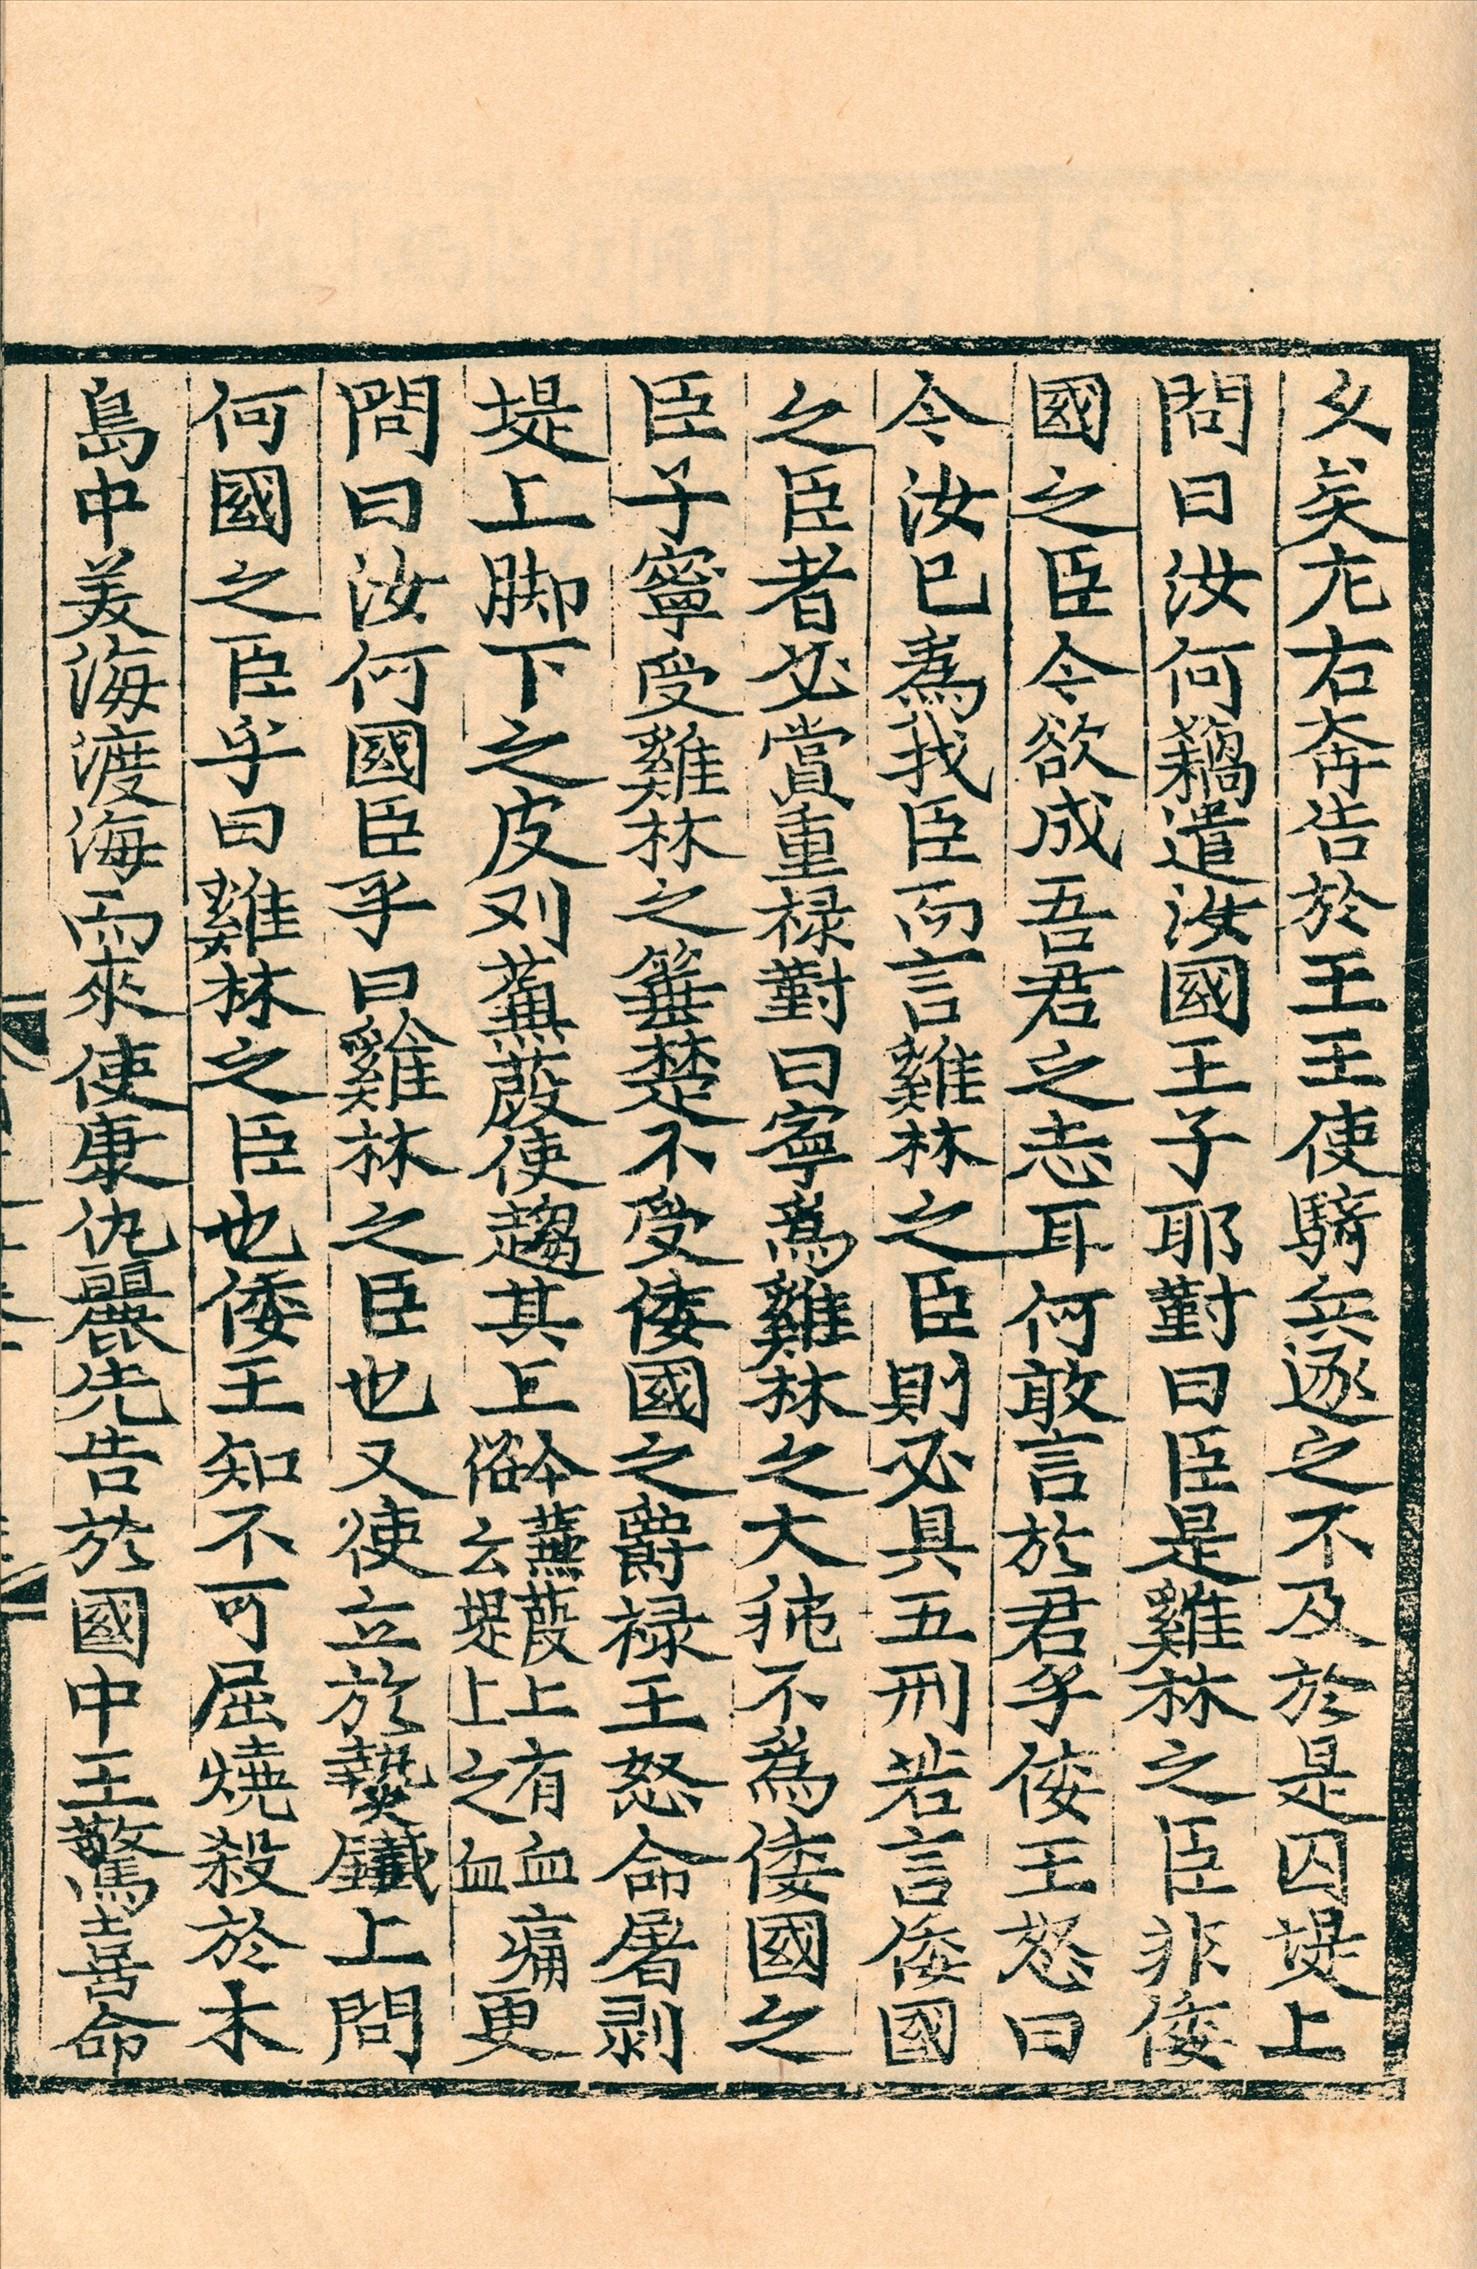 久矣左右奔告於王王使騎兵逐之不及於是囚堤上
問曰汝何竊遣汝國王子耶對曰臣是雞林之臣非倭
國之臣今欲成吾君之志耳何敢言於君乎倭王怒曰
今汝已爲我臣而言雞林之臣則必具五刑若言倭國
之臣者必賞重禄對曰寧爲雞林之犬㹠不爲倭國之
臣子寧受雞林之箠楚不受倭國之爵禄王怒命屠剥
堤上脚下之皮刈蒹葭使趨其上今蒹葭上有血痕俗云堤上之血更
問曰汝何國臣乎曰雞林之臣也又使立於熱鐵上問
何國之臣乎曰雞林之臣也倭王知不可屈燒殺於木
島中美海渡海而來使康仇麗先告於國中王驚喜命